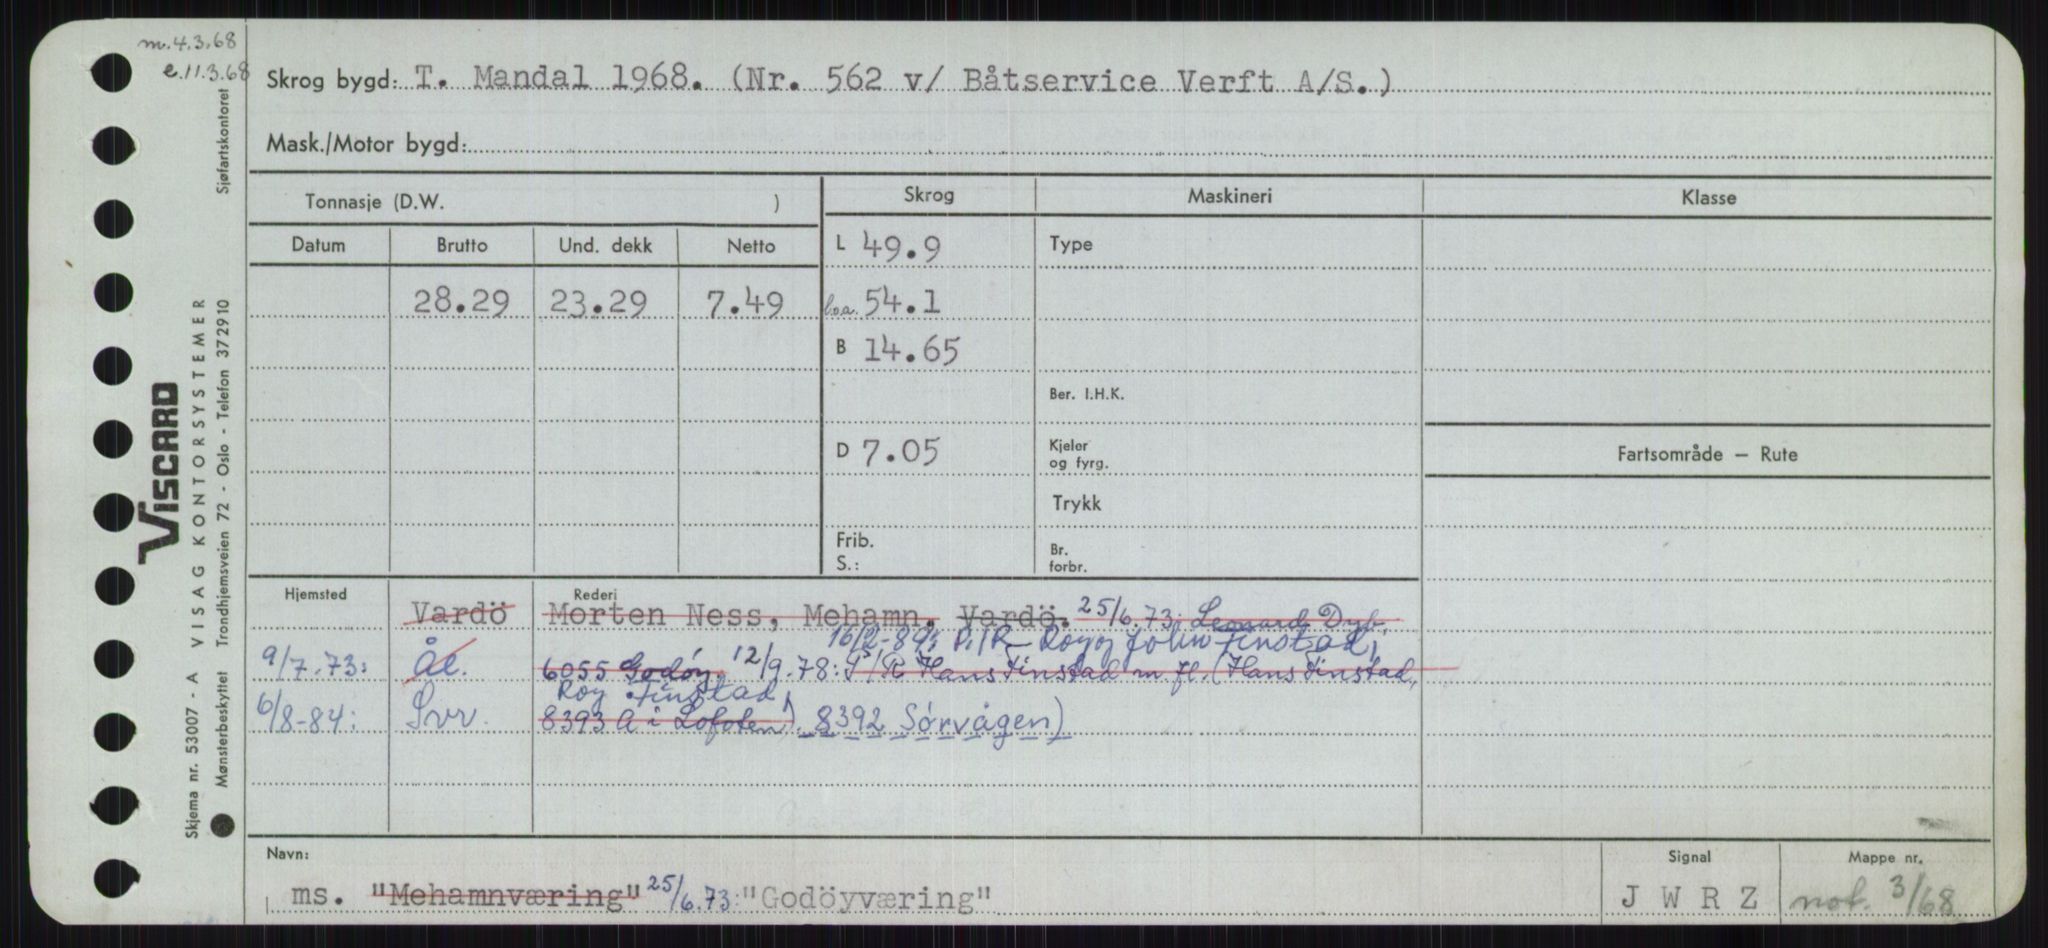 m. 4.3.68
e. 11.3.68
Skrog bygd: T. Mandal 1968. (Nr. 562 v/ Båtservice Verft A/S.)
Mask./Motor bygd:
Tonnasje (D.W. )
Skrog
Maskineri
Klasse
Datum Brutto Und. dekk Netto
L 49.9
Type
28.29 23.29 7.49
l.o.a. 54.1
B 14.65
Ber. I.H.K.
D 7.05
Kjeler
og fyrg.
Fartsområde — Rute
Trykk
Frib.
S.:
Br.
forbr.
Hjemsted
Rederi
Vardö Morten Ness, Mehamn, Vardö. 25/6.73: Leonard Dyb,
16/2-89: P/R Roy og John Finstad,
9/7.73: Ål. 6055 Godøy, 12/9.78: P/R Hans Finstad m. fl. (Hans Finstad,
Roy Finstad,
6/8-84: Svv. 8393 Å i Lofoten). 8392 Sørvågen)
Navn:
Signal
Mappe nr.
ms. "Mehamnværing" 25/6.73: "Godöyværing"
J W R Z
not. 3/68
VISCARD
VISAG KONTORSYSTEMER
Skjema nr. 53007 - A
Mønsterbeskyttet Trondhjemsveien 72 - Oslo - Telefon 372910 Sjøfartskontoret